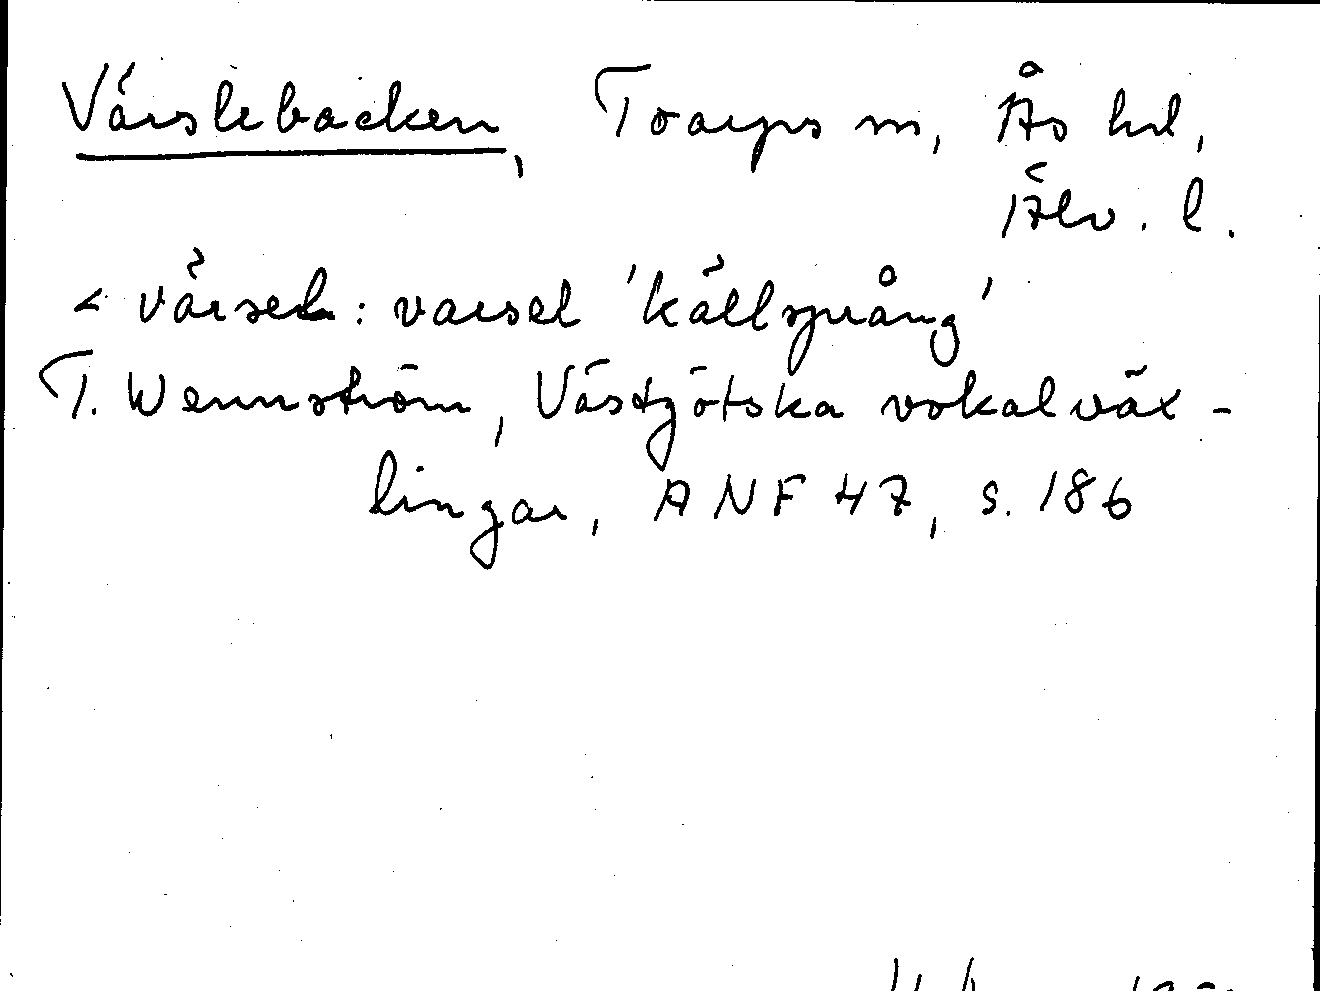 Värslebacken, Toarps sn, Ås hd,
Älv. l.
< värsel : varsel 'källsprång'
T. Wennström, Västgötska vokalväx-
lingar, ANF 47, s. 186